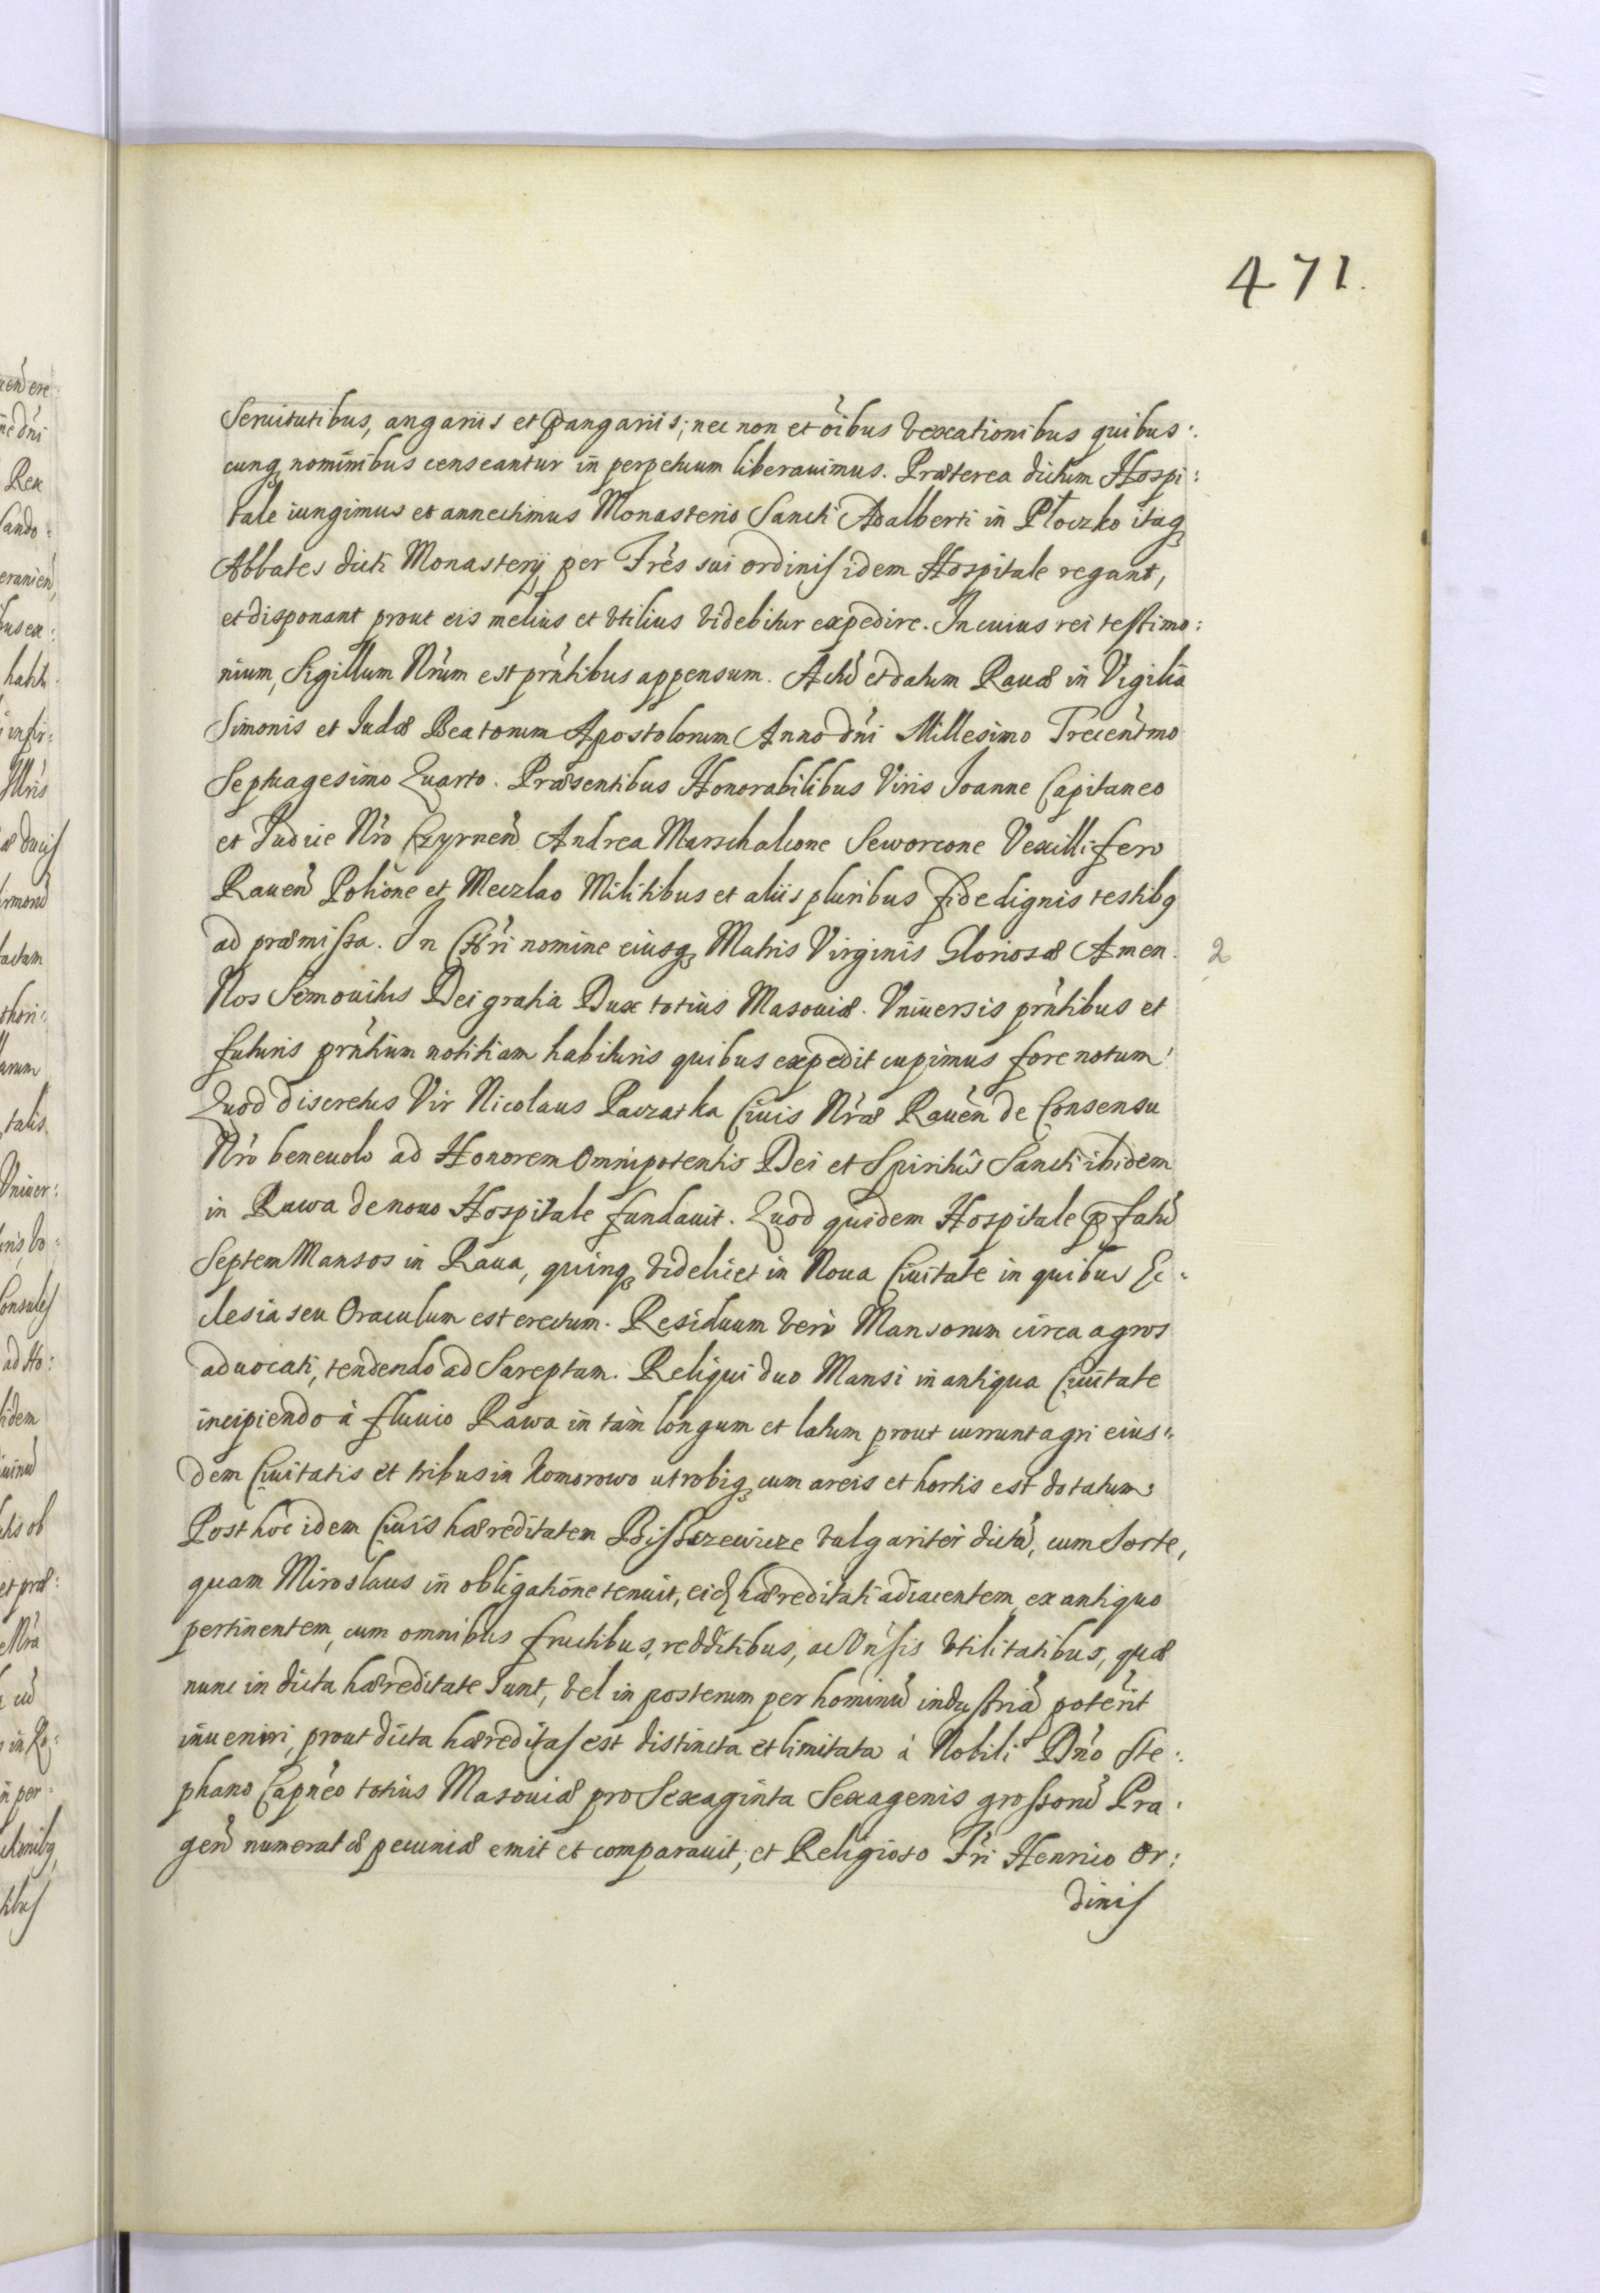 471.
Seruitutibus, angariis et ꝑangariis; nec non et oı̃bus vexationibus quibus:
cunqꝫ nominibus censeantur in perpetuum liberauimus. Præterea dictum Hospi:
tale iungimus et annectimus Monasterio Sancti Adalberti in Płoczko itaqꝫ
Abbates dicti Monasterij per Frẽs sui ordinis idem Hospitale regant,
et disponant prout eis melius et vtilius videbitur expedire. In cuius rei testimo:
nium, Sigillum Nrũm est prñtibus appensum. Actũ et datum Rauæ in Vigilia
Simonis et Iudæ Beatorum Apostolorum Anno dñi Millesimo Trecentm̃o
Septuagesimo Quarto. Præsentibus Honorabilibus Viris Joanne Capitaneo
et Iudice Nrõ Czyrneñ Andrea Marschalcone Seworcone Vexillifero
Raueñ Potione et Meczlao Militibus et aliis pluribus fide dignis testibꝫ
ad præmissa. In Chrı̃ nomine eiusqꝫ Matris Virginis Gloriosæ Amen. 2
Nos Semouitus Dei gratia Dux totius Masouiæ. Vniuersis prñtibus et
futuris prñtium notitiam habituris quibus expedit cupimus fore notum:
Quod discretus Vir Nicolaus Paczatka Ciuis Nrãe Raueñ de Consensu
Nrõ beneuolo ad Honorem Omnipotentis Dei et Spiritûs Sancti ibidem
in Rawa de nouo Hospitale fundauit. Quod quidem Hospitale p̃fatũ
Septem Mansos in Raua, quinqꝫ videlicet in Noua Ciuitate in quibus Ec:
clesia seu Oraculum est erectum. Residuum verò Mansorum circa agros
aduocati, tendendo ad Sareptam. Reliqui duo Mansi in antiqua Ciuitate
incipiendo à fluuio Rawa in tam longum et latum prout currunt agri eius:
dem Ciuitatis et tribus in Komorowo utrobiqꝫ cum areis et hortis est dotatum:
Post hoc idem Ciuis hæreditatem vulgariter dictã, cum Sorte,
quam Miroslaus in obligatione tenuit, eidꝫ hæreditati adiacentem, ex antiquo
pertinentem, cum omnibus fructibus, redditibus, ac Vñsis vtilitatibus, quæ
nunc in dicta hæreditate sunt, vel in posterum per hominũ industriã poterit
inueniri, prout dicta hæreditas est distincta et limitata à Nobili Dño Ste:
phano Capñeo totius Masouiæ pro Sexaginta Sexagenis grossorũ Pra:
geñ numeratæ pecuniæ emit et comparauit, et Religioso Frı̃ Henrico Or:
dinis